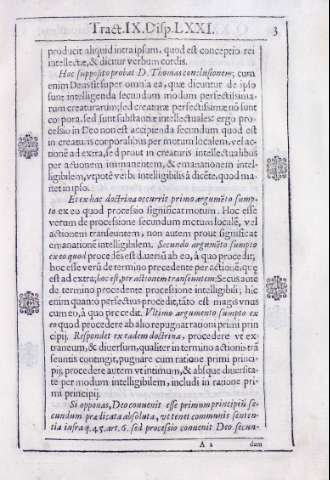 Tract.IX.Disp.LXXI. 3
producit aliquid intra ipsum, quod est conceptio rei
intellectæ, & dicitur verbum cordis.
Hoc supposito probat D. Thomas conclusionem; cum
enim Deus sit super omnia ea, quæ dicuntur de ipso
sunt intelligenda secundum modum perfectissima-
rum creaturarum; sed creaturæ perfectissimæ nõ sunt
corpora, sed sunt substantiæ intellectuales: ergo pro-
cessio in Deo non est accipienda secundum quod est
in creaturis corporalibus per motum localem, vel acti-
onē ad extra, sed prout in creaturis intellectualibus
per actionem immanentem, & emanationem intel-
ligibilem, vt potè verbi intelligibilis à dicēte, quod ma-
net in ipso.
Et ex hac doctrina occurrit primo argumẽto sump-
to ex eo quod processio significat motum. Hoc esse
verum de processione secundum motum localē, vel
actionem transeuntem, non autem prout significat
emanationē intelligibilem. Secundo argumẽto sumpto
ex eo quod procedēs est diuersũ ab eo, à quo procedit;
hoc esse verũ de termino procedente per actionē, quę
est ad extra, hoc est, per actionem transeuntem: Secus autē
de termino procedente processione intelligibili; hic
enim quanto perfectius procedit, tãto est magis vnus
cum eo, à quo procedit. Vltimo argumento sumpto ex
eo quod procedere ab alio repugnat rationi primi prin
cipij. Respondet ex eadem doctrina, procedere vt ex-
traneum, & diuersum, qualiter in termino actionis trã
seuntis contingit, pugnare cum ratione primi princi-
pij, procedere autem vt intimum, & absque diuersita-
te per modum intelligibilem, includi in ratione pri-
mi principij.
Si opponas, Deo conuenit esse primum principiũ se-
cundum prædicata absoluta, vt tenet communis senten-
tia infra q. 45. art. 6. sed processio conuenit Deo secun-
A 2 dum